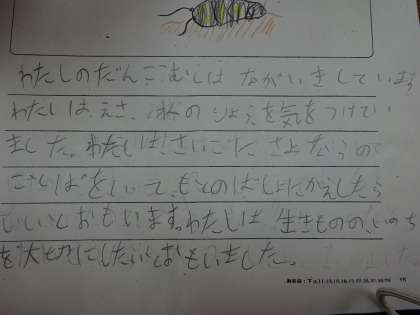 わたしのだんごむしは ながいきしています
わたしは、えさ、水のりょうを気をつけてい
ました。わたしは、さいごに さよならの
ことばをいって、もとのばしょにかえしたら
いいとおもいます。わたしは 生きものの、いのち
を大切にしたいとおもいました。